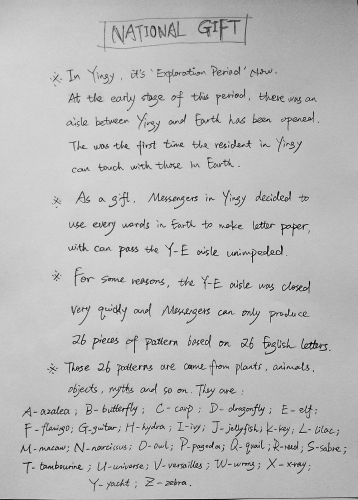 NATIONAL GIFT
※ In Yingy, it's 'Exploration Period' Now.
At the early stage of this period, there was an
aisle between Yingy and Earth has been opened.
The was the first time the resident in Yingy
can touch with those in Earth.
※ As a gift, Messengers in Yingy decided to
use every words in Earth to make letter paper,
with can pass the Y-E aisle unimpeded.
※ For some reasons, the Y-E aisle was closed
very quickly and Messengers can only produce
26 pieces of pattern based on 26 English letters.
※ Those 26 patterns are came from plants, animals,
objects, myths and so on. They are:
A-azalea; B-butterfly; C-carp; D-dragonfly; E-elf;
F-flamigo; G-guitar; H-hydra; I-ivy; J-jellyfish; K-key; L-lilac;
M-macaw; N-narcissus; O-owl; P-pagoda; Q-quail; R-reed; S-sabre;
T-tambourine; U-universe; V-versailles; W-wrong; X-x-ray;
Y-yacht; Z-zebra.